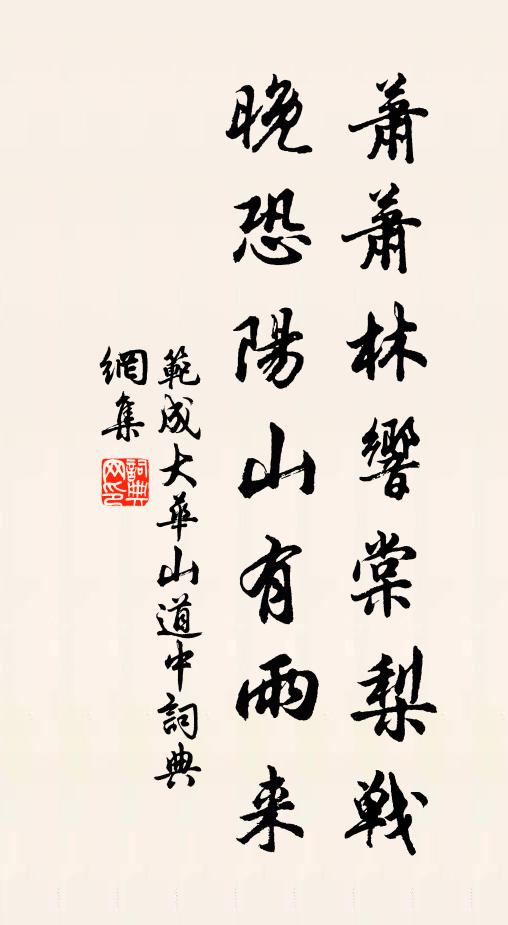 蕭蕭林響棠梨戦
晚恐陽山有雨来
範成大華山道中詞典
網集
詞典网印